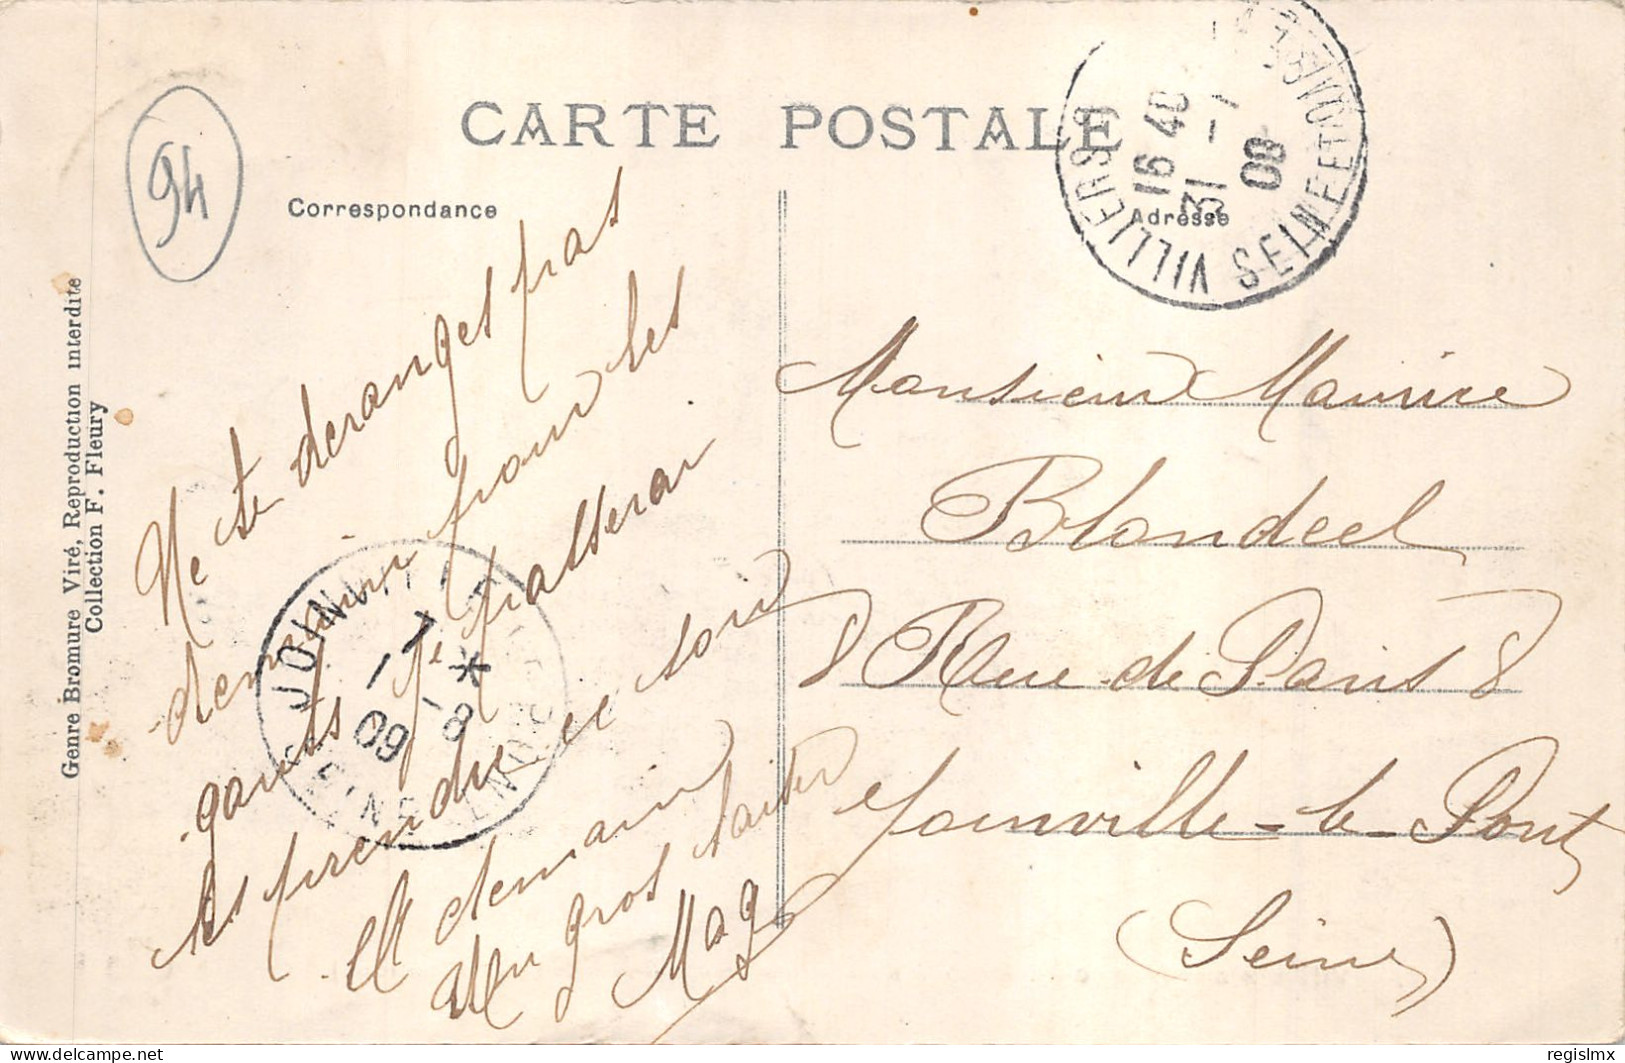 CARTE POSTALE
94
Correspondance
Adresse
Genre Bromure Viré, Reproduction interdite
Collection F. Fleury
VILLIERS
SEINE ET OISE
16 40
31 - 1
09
Ne te deranges pas
demain pour les
gants je passerai
les prendre ce soir
A demain
un gros baiser
Mag
JOINVILLE
PONT
SEINE
1 - 1
09
8
Monsieur Maurice
Blondeel
8 Rue de Paris 8
Joinville-le-Pont
(Seine)
delcampe.net
regislmx